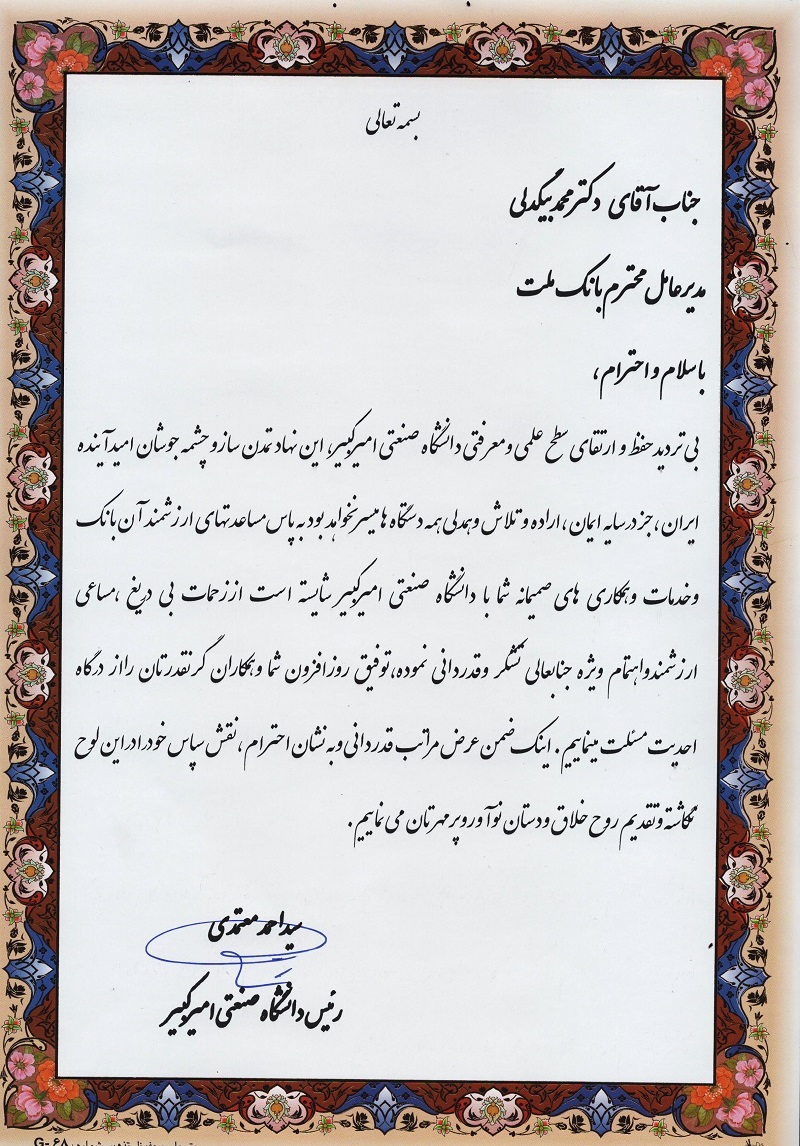 بسمه تعالی
جناب آقای دکتر محمد بیگدلی
مدیر عامل محترم بانک ملت
با سلام و احترام،
بی تردید حفظ و ارتقای سطح علمی و معرفتی دانشگاه صنعتی امیرکبیر، این نهاد تمدن ساز و چشمه جوشان امید آینده
ایران، جز در سایه ایمان، اراده و تلاش و همدلی همه دستگاه ها میسر نخواهد بود به پاس مساعدتهای ارزشمند آن بانک
و خدمات و همکاری های صمیمانه شما با دانشگاه صنعتی امیرکبیر شایسته است از زحمات بی دریغ، مساعی
ارزشمند و اهتمام ویژه جنابعالی تشکر و قدردانی نموده، توفیق روزافزون شما و همکاران گرنقدرتان را از درگاه
احدیت مسئلت مینماییم. اینک ضمن عرض مراتب قدردانی و به نشان احترام، نقش سپاس خود را در این لوح
نگاشته و تقدیم روح خلاق و دستان نوآور و پر مهرتان می نماییم.
سید احمد معتمدی
رئیس دانشگاه صنعتی امیرکبیر
G-۶۸